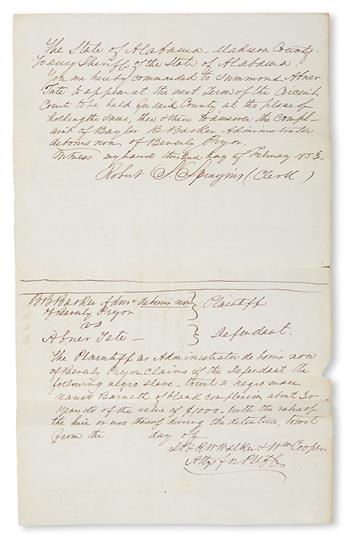 The State of Alabama - Madison County.
To any Sheriff of the State of Alabama -
You are hereby commanded to Summond Abner
Tate to appear at the next Term of the Circuit
Court to be held for said County at the place of
holding the same, then & there to answer the Compl-
aint of Baylor B. Barker Administrator
debonis non, of Beverly Pryor.
Witness my hand this 2nd day of February 1853.
Robert S. Spragins (Clerk)
B B Barker Admr debonis non
of Beverly Pryor } Plaintiff
vs
Abner Tate - } Defendant.
The Plaintiff as Administrator de bonis non
of Beverly Pryor claims of the Defendant the
following negro slave - towit a negro man
named Barnett of black complexion about 30
years old of the value of $1000. with the value of
the hire or use thereof during the detention, towit
from the day of
& R W Walker & Wm Cooper
Attys for Pltff